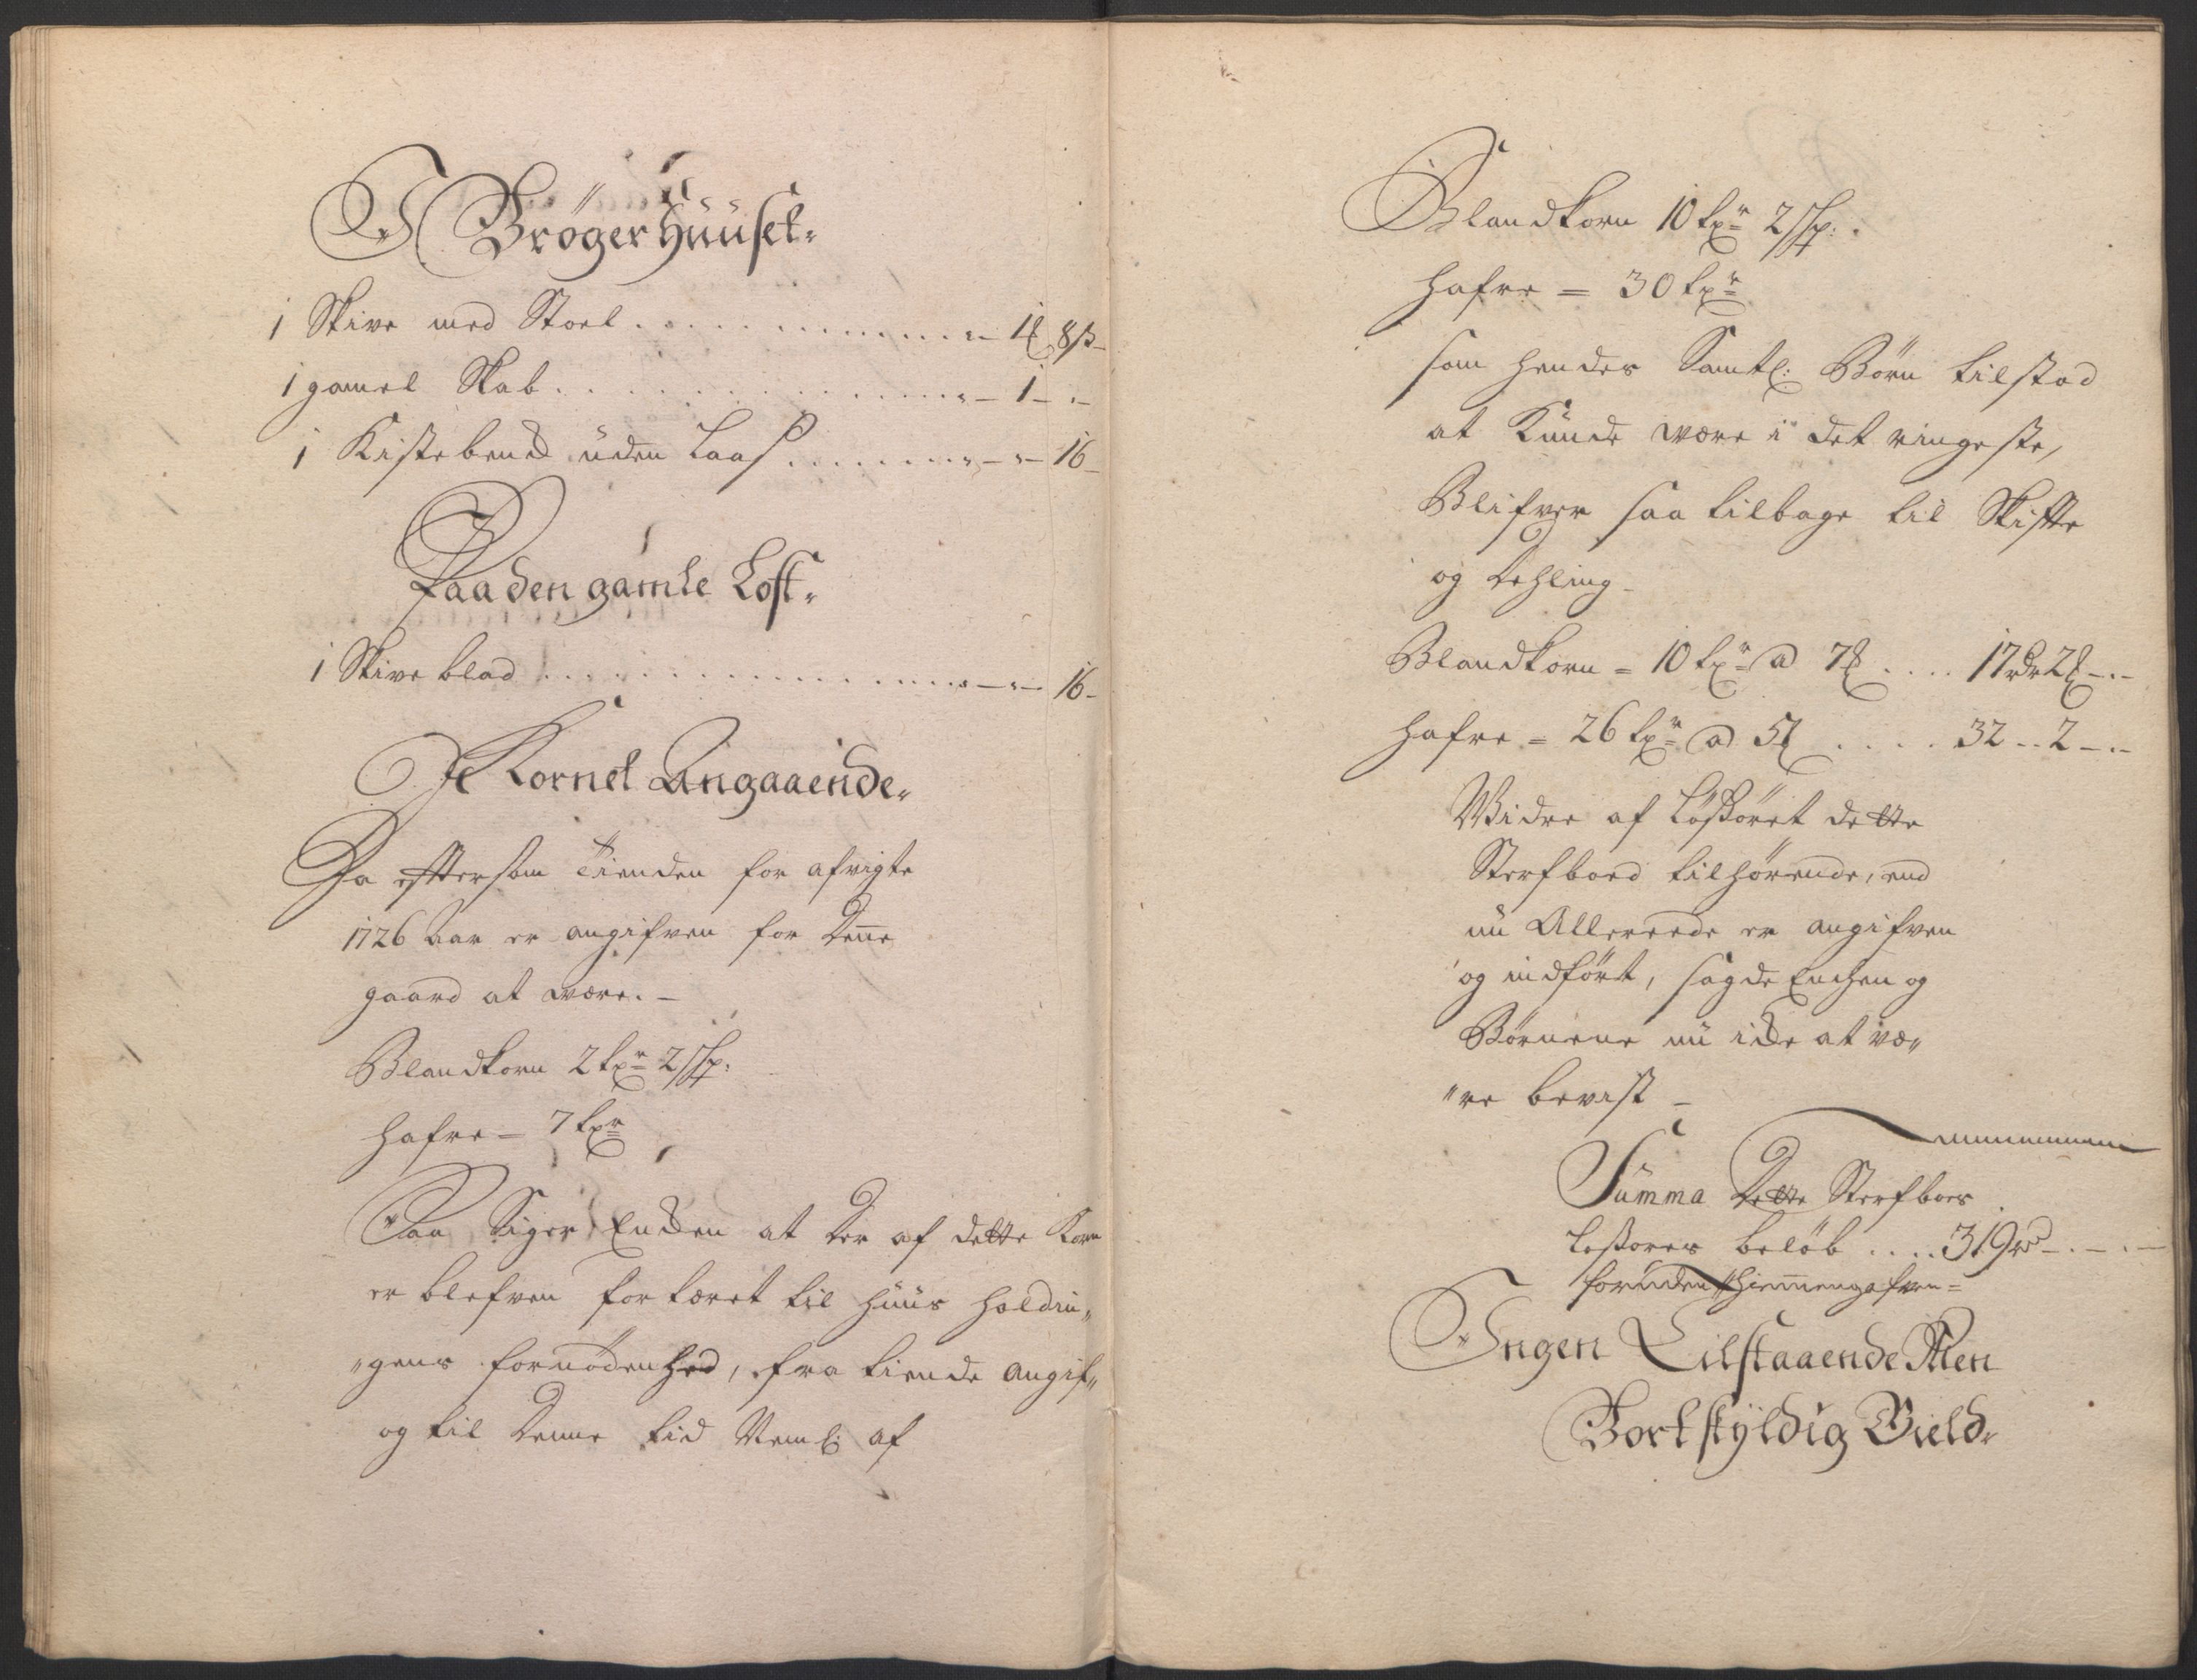 I Brøger Huuset.
1 Skive med Stoel . . . . . 1 8 ß
1 gamel Skab . . . . . 1 - -
1 Kiste bened uden Laas . . . . . 16 -
Paa den gamle Loft.
1 Skive blad . . . . . 16 -
Kornet Angaaende.
Da efftersom Tienden for afvigte
1726 Aar er angifven for denne
gaard at være. -
Blandkorn 2 2 Sp:
Hafre - 7
Saa Siger Encken at der af dette Korn
er blefven fortæret til Huus holdin„
„gens fornødenhed, fra tiende angif„
og til denne tid Neml: af
Blandkorn 10 2 Sp:
Hafre = 30
som hendes Samtl: Børn tilstod
at Kunde være i det ringeste,
Blifver saa tilbage til Skiffte
og dehling -
Blandkorn = 10 a 7 . . . . 17 rdr 2 - . -
Hafre = 26 a 5 . . . . 32 . . 2 - . -
Widre af Løsøret dette
Sterfboed tilhørende, end
nu Allereede er angifven
og indført, sagde Enchen og
Børnene nu icke at væ„
„re bevist -
Summa Dette Sterfboes
Løsøres beløb . . . . 319 rd - . - . -
foruden Hiemmengafven =
Ingen Tilstaaende Men
Bortskyldig Gield.